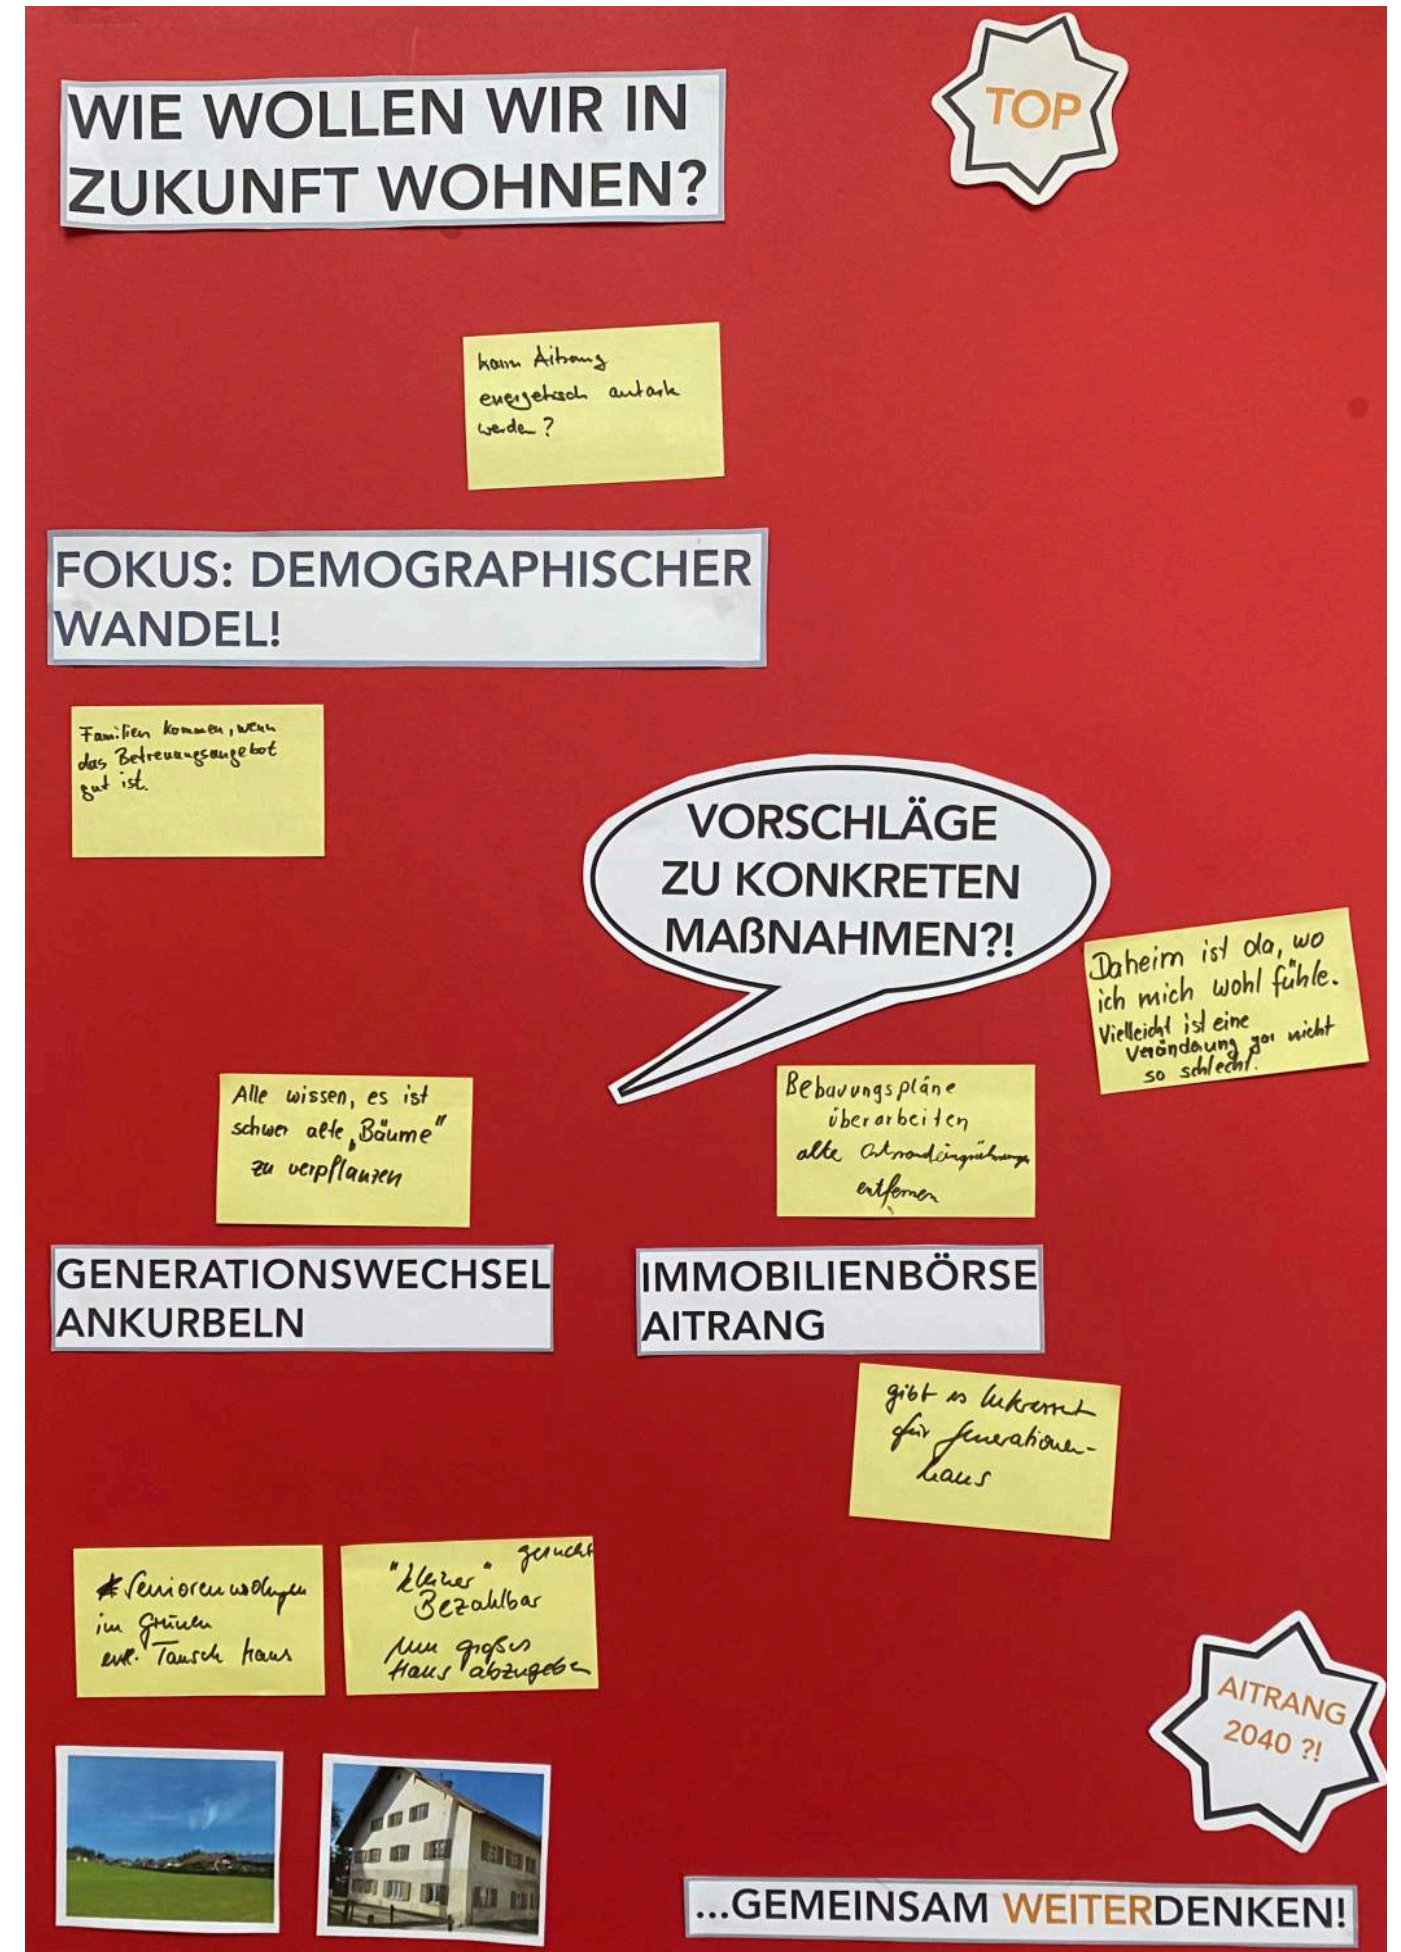 WIE WOLLEN WIR IN
ZUKUNFT WOHNEN?
TOP
kann Aitrang
energetisch autark
werden?
FOKUS: DEMOGRAPHISCHER
WANDEL!
Familien kommen, wenn
das Betreuungsangebot
gut ist.
VORSCHLÄGE
ZU KONKRETEN
MAßNAHMEN?!
Daheim ist da, wo
ich mich wohl fühle.
Vielleicht ist eine
Veränderung gar nicht
so schlecht.
Alle wissen, es ist
schwer alte „Bäume"
zu verpflanzen
Bebauungspläne
überarbeiten
alte Ortsrandeingrünungen
entfernen
GENERATIONSWECHSEL
ANKURBELN
IMMOBILIENBÖRSE
AITRANG
gibt es
für Generationen-
haus
Seniorenwohnungen
im Grünen
evtl. Tausch Haus
"kleiner" gesucht
Bezahlbar
großes
Haus abzugeben
AITRANG
2040 ?!
...GEMEINSAM WEITERDENKEN!